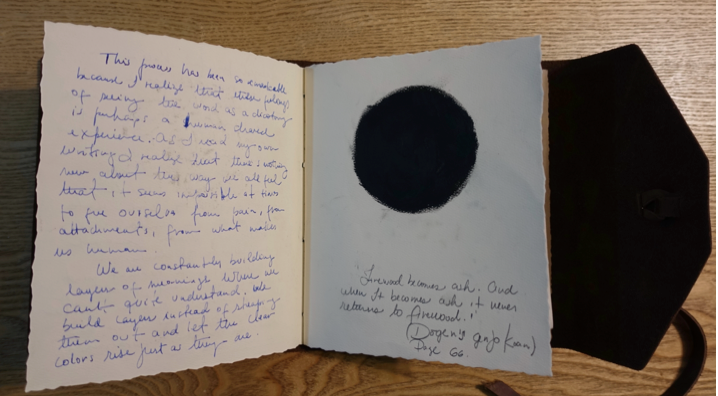 This process has been so remarkable
because I realize that
of seeing the word as a
is perhaps a human shared
experience. As I read my own
writing I realize that there's nothing
new about the way we all feel
that it seems impossible at times
to free ourselves from pain, from
attachments, from what makes
us human.
We are constantly building
layers of meanings where we
can't quite understand. We
build layers instead of stripping
them out and let the clear
colors rise just as they are.
"Firewood becomes ash. And
when it becomes ash it never
returns to firewood."
(Dogen's
Page 66.